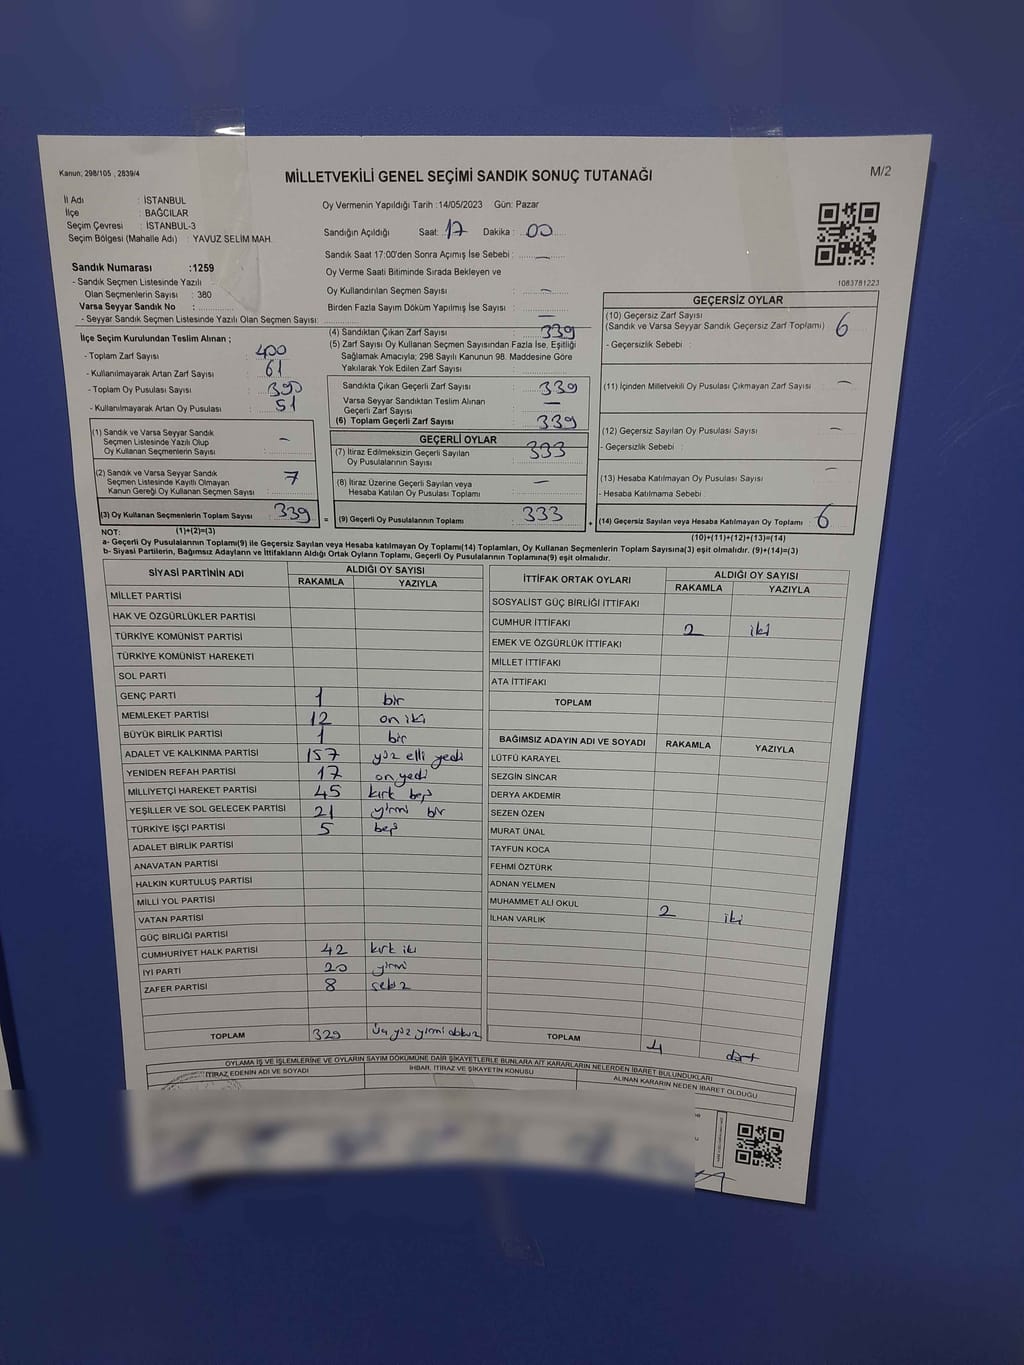 Kanun, 298/105 , 2839/4
MİLLETVEKİLİ GENEL SEÇİMİ SANDIK SONUÇ TUTANAĞI
M/2
İl Adı : İSTANBUL
İlçe : BAĞCILAR
Seçim Çevresi : İSTANBUL-3
Seçim Bölgesi (Mahalle Adı) : YAVUZ SELİM MAH.
Oy Vermenin Yapıldığı Tarih :14/05/2023 Gün: Pazar
Sandığın Açıldığı Saat: 17 Dakika : 00
Sandık Saat 17:00'den Sonra Açımış İse Sebebi : —
Oy Verme Saati Bitiminde Sırada Bekleyen ve
Oy Kullandırılan Seçmen Sayısı : —
Birden Fazla Sayım Döküm Yapılmış İse Sayısı : —
1083781223
Sandık Numarası :1259
- Sandık Seçmen Listesinde Yazılı
Olan Seçmenlerin Sayısı : 380
Varsa Seyyar Sandık No :
- Seyyar Sandık Seçmen Listesinde Yazılı Olan Seçmen Sayısı:
İlçe Seçim Kurulundan Teslim Alınan ;
- Toplam Zarf Sayısı : 400
- Kullanılmayarak Artan Zarf Sayısı : 61
- Toplam Oy Pusulası Sayısı : 390
- Kullanılmayarak Artan Oy Pusulası : 51
(1) Sandık ve Varsa Seyyar Sandık
Seçmen Listesinde Yazılı Olup
Oy Kullanan Seçmenlerin Sayısı : —
(2) Sandık ve Varsa Seyyar Sandık
Seçmen Listesinde Kayıtlı Olmayan
Kanun Gereği Oy Kullanan Seçmen Sayısı : 7
(3) Oy Kullanan Seçmenlerin Toplam Sayısı : 339
(1)+(2)=(3)
(4) Sandıktan Çıkan Zarf Sayısı : 339
(5) Zarf Sayısı Oy Kullanan Seçmen Sayısından Fazla İse, Eşitliği
Sağlamak Amacıyla; 298 Sayılı Kanunun 98. Maddesine Göre
Yakılarak Yok Edilen Zarf Sayısı :
Sandıkta Çıkan Geçerli Zarf Sayısı : 339
Varsa Seyyar Sandıktan Teslim Alınan
Geçerli Zarf Sayısı : —
(6) Toplam Geçerli Zarf Sayısı : 339
GEÇERLİ OYLAR
(7) İtiraz Edilmeksizin Geçerli Sayılan
Oy Pusulalarının Sayısı : 333
(8) İtiraz Üzerine Geçerli Sayılan veya
Hesaba Katılan Oy Pusulası Toplamı : —
= (9) Geçerli Oy Pusulalarının Toplamı : 333
GEÇERSİZ OYLAR
(10) Geçersiz Zarf Sayısı
(Sandık ve Varsa Seyyar Sandık Geçersiz Zarf Toplamı) : 6
- Geçersizlik Sebebi :
(11) İçinden Milletvekili Oy Pusulası Çıkmayan Zarf Sayısı : —
(12) Geçersiz Sayılan Oy Pusulası Sayısı : —
- Geçersizlik Sebebi :
(13) Hesaba Katılmayan Oy Pusulası Sayısı : —
- Hesaba Katılmama Sebebi :
+ (14) Geçersiz Sayılan veya Hesaba Katılmayan Oy Toplamı : 6
(10)+(11)+(12)+(13)=(14)
NOT:
a- Geçerli Oy Pusulalarının Toplamı(9) ile Geçersiz Sayılan veya Hesaba katılmayan Oy Toplamı(14) Toplamları, Oy Kullanan Seçmenlerin Toplam Sayısına(3) eşit olmalıdır. (9)+(14)=(3)
b- Siyasi Partilerin, Bağımsız Adayların ve İttifakların Aldığı Ortak Oyların Toplamı, Geçerli Oy Pusulalarının Toplamına(9) eşit olmalıdır.
SİYASİ PARTİNİN ADI ALDIĞI OY SAYISI
RAKAMLA YAZIYLA
MİLLET PARTİSİ
HAK VE ÖZGÜRLÜKLER PARTİSİ
TÜRKİYE KOMÜNİST PARTİSİ
TÜRKİYE KOMÜNİST HAREKETİ
SOL PARTİ
GENÇ PARTİ 1 bir
MEMLEKET PARTİSİ 12 on iki
BÜYÜK BİRLİK PARTİSİ 1 bir
ADALET VE KALKINMA PARTİSİ 157 yüz elli yedi
YENİDEN REFAH PARTİSİ 17 on yedi
MİLLİYETÇİ HAREKET PARTİSİ 45 kırk beş
YEŞİLLER VE SOL GELECEK PARTİSİ 21 yirmi bir
TÜRKİYE İŞÇİ PARTİSİ 5 beş
ADALET BİRLİK PARTİSİ
ANAVATAN PARTİSİ
HALKIN KURTULUŞ PARTİSİ
MİLLİ YOL PARTİSİ
VATAN PARTİSİ
GÜÇ BİRLİĞİ PARTİSİ
CUMHURİYET HALK PARTİSİ 42 kırk iki
İYİ PARTİ 20 yirmi
ZAFER PARTİSİ 8 sekiz
TOPLAM 329 Üç yüz yirmi dokuz
İTTİFAK ORTAK OYLARI ALDIĞI OY SAYISI
RAKAMLA YAZIYLA
SOSYALİST GÜÇ BİRLİĞİ İTTİFAKI
CUMHUR İTTİFAKI 2 iki
EMEK VE ÖZGÜRLÜK İTTİFAKI
MİLLET İTTİFAKI
ATA İTTİFAKI
TOPLAM
BAĞIMSIZ ADAYIN ADI VE SOYADI RAKAMLA YAZIYLA
LÜTFÜ KARAYEL
SEZGİN SİNCAR
DERYA AKDEMİR
SEZEN ÖZEN
MURAT ÜNAL
TAYFUN KOCA
FEHMİ ÖZTÜRK
ADNAN YELMEN
MUHAMMET ALİ OKUL
İLHAN VARLIK 2 iki
TOPLAM 4 dört
OYLAMA İŞ VE İŞLEMLERİNE VE OYLARIN SAYIM DÖKÜMÜNE DAİR ŞİKAYETLERLE BUNLARA AİT KARARLARIN NELERDEN İBARET BULUNDUKLARI
İTİRAZ EDENİN ADI VE SOYADI İHBAR, İTİRAZ VE ŞİKAYETİN KONUSU ALINAN KARARIN NEDEN İBARET OLDUĞU